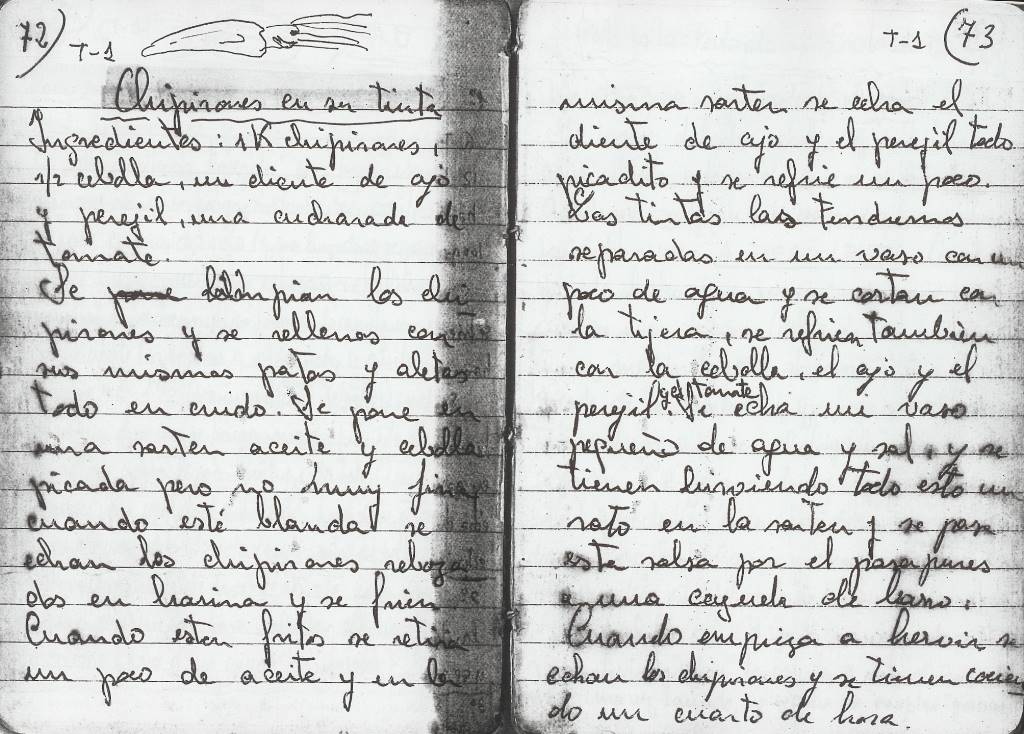 72) T-1
Chipirones en su tinta
Ingredientes: 1K chipirones,
1/2 cebolla, un diente de ajo
y perejil, una cucharada de
tomate.
Se limpian los chi
pirones y se rellenos con
sus mismas patas y aletas
todo en crudo. Se pone en
una sarten aceite y cebolla
picada pero no muy fina
cuando esté blanda se
echan los chipirones reboza
dos en harina y se frien
Cuando esten fritos se retira
un poco de aceite y en la
T-1 (73
misma sarten se echa el
diente de ajo y el perejil todo
picadito y se refrie un poco.
Las tintas las tendremos
separadas en un vaso con un
poco de agua y se cortan con
la tijera, se refrien también
con la cebolla, el ajo y el
perejil y el tomate. Se echa un vaso
pequeño de agua y sal, y se
tienen hirviendo todo esto un
rato en la sarten y se pasa
esta salsa por el pasapures
a una cazuela de barro.
Cuando empieza a hervir se
echan los chipirones y se tienen cocien
do un cuarto de hora.